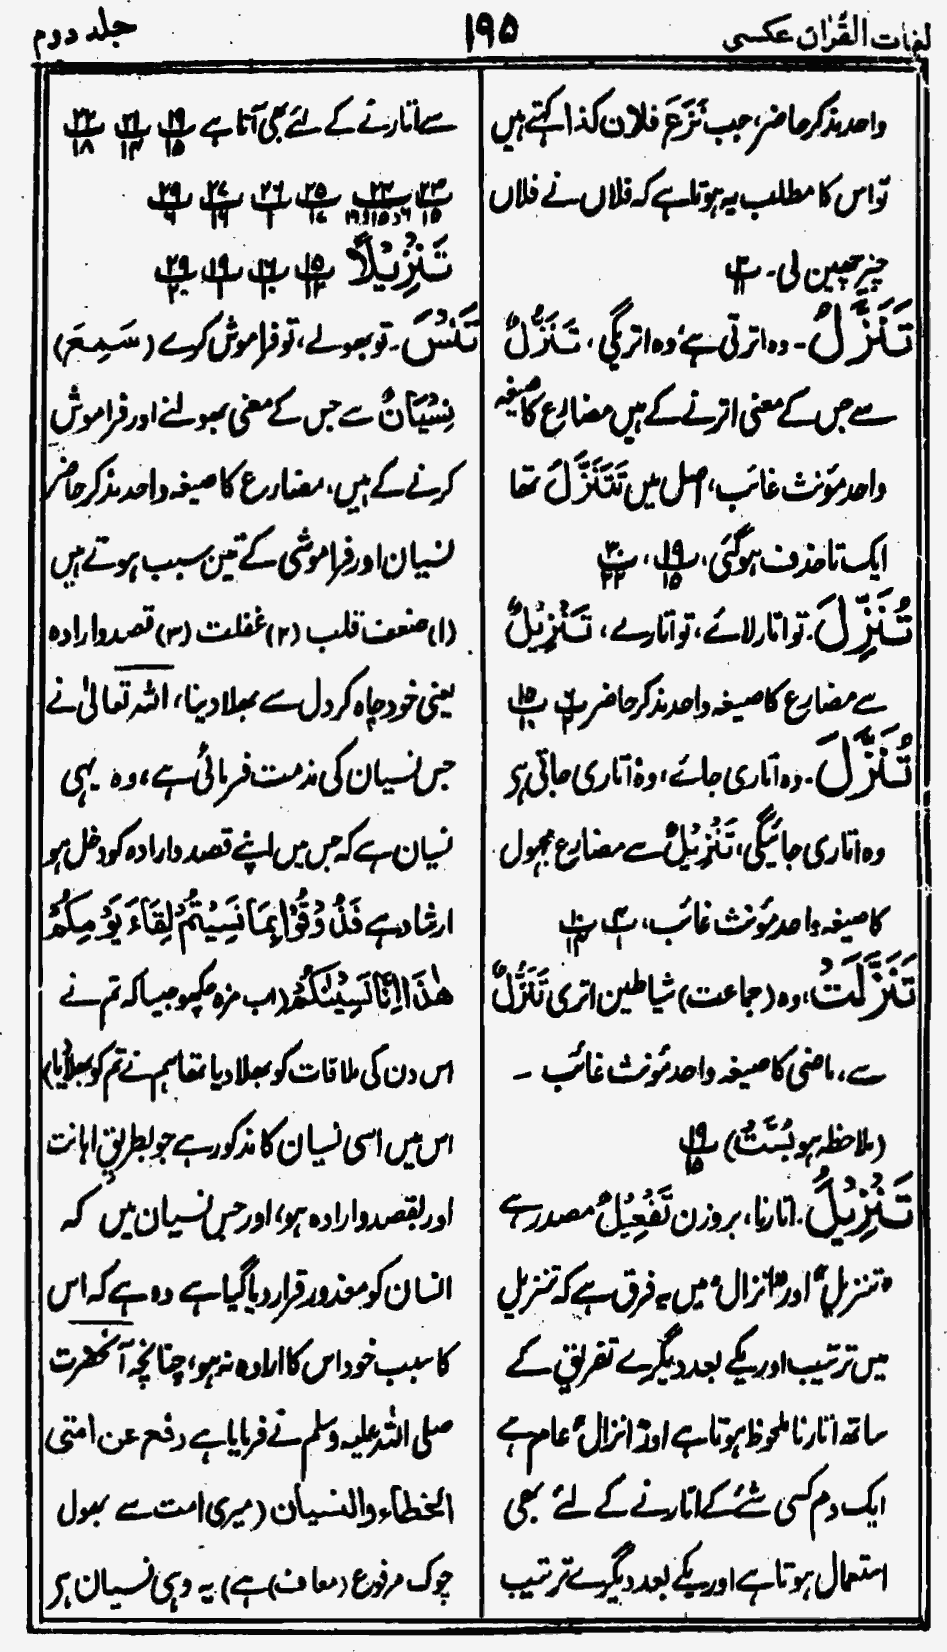 لغات القرآن عکسی
۱۹۵
جلد دوم
واحد مذکر حاضر، جب نَزَعَ فلان کذا کہتے ہیں
تو اس کا مطلب یہ ہوتا ہے کہ فلاں نے فلاں
چیز چھین لی۔ پ۳/۱۱
تَنَزَّلُ۔ وہ اترتی ہے، وہ اتریگی، تَنَزُّلٌ
سے جس کے معنی اترنے کے ہیں مضارع کا صیغہ
واحد مؤنث غائب، اصل میں تَتَنَزَّلُ تھا
ایک تا حذف ہوگئی، پ۱۹/۱۵، پ۳۰/۲۲
تُنَزِّلَ۔ تو اتار لائے، تو اتارے، تَنْزِیْلٌ
سے مضارع کا صیغہ واحد مذکر حاضر پ۶/۲ پ۱۵/۱۰
تُنَزَّلَ۔ وہ اتاری جائے، وہ اتاری جاتی ہر
وہ اتاری جائیگی، تَنْزِیْلٌ سے مضارع مجہول
کا صیغہ واحد مؤنث غائب، پ۴/۱، پ۱۰/۱۴
تَنَزَّلَتْ، وہ (جماعت) شیاطین اتری تَنَزُّلٌ
سے، ماضی کا صیغہ واحد مؤنث غائب ۔
(ملاحظہ ہو بُسَّتْ) پ۱۹/۱۵
تَنْزِیْلُ۔ اتارنا، بروزن تَفْعِیْلٌ مصدر ہے
"تنزیل" اور "انزال" میں یہ فرق ہے کہ تنزیل
میں ترتیب اور یکے بعد دیگرے تفریق کے
ساتھ اتارنا ملحوظ ہوتا ہے اور "انزال" عام ہے
ایک دم کسی شے کے اتارنے کے لئے بھی
استعمال ہوتا ہے اور یکے بعد دیگرے ترتیب
سے اتارنے کے لئے بھی آتا ہے پ۱۹/۱۵ پ۲۱/۱۴ پ۲۲/۱۸
پ۲۳/۱۵ پ۲۳/۱۹،۱۵،۶ پ۲۵/۱۷ پ۲۶/۱ پ۲۷/۱۶ پ۲۹/۶
تَنْزِیْلًا پ۱۵/۱۲ پ۱۶/۱۰ پ۱۹/۱ پ۲۹/۲۰
تَنْسَ۔ تو بھولے، تو فراموش کرے (سَمِعَ)
نِسْیَانٌ سے جس کے معنی بھولنے اور فراموش
کرنے کے ہیں، مضارع کا صیغہ واحد مذکر حاضر
نسیان اور فراموشی کے تین سبب ہوتے ہیں
(۱) ضعف قلب (۲) غفلت (۳) قصد و ارادہ
یعنی خود چاہ کر دل سے بھلا دینا، اللہ تعالیٰ نے
جس نسیان کی مذمت فرمائی ہے، وہ یہی
نسیان ہے کہ جس میں اپنے قصد و ارادہ کو دخل ہو
ارشاد ہے فَذُوْقُوْا بِمَا نَسِیْتُمْ لِقَاءَ یَوْمِکُمْ
هٰذَا اِنَّا نَسِیْنٰکُمْ (اب مزہ چکھو جیسا کہ تم نے
اس دن کی ملاقات کو بھلا دیا تھا ہم نے تم کو بھلا دیا)
اس میں اسی نسیان کا مذکور ہے جو بطریق اہانت
اور بقصد و ارادہ ہو، اور جس نسیان میں کہ
انسان کو معذور قرار دیا گیا ہے وہ ہے کہ اس
کا سبب خود اس کا ارادہ نہ ہو، چنانچہ آنحضرت
صلی اللہ علیہ وسلم نے فرمایا ہے رفع عن امتی
الخطاء والنسیان (میری امت سے بھول
چوک مرفوع (معاف) ہے) یہ وہی نسیان ہر